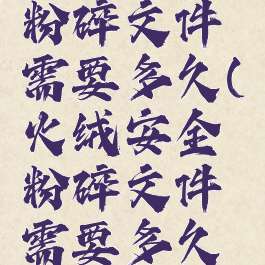 粉碎文件
需要多久(
火绒安全
粉碎文件
需要多久